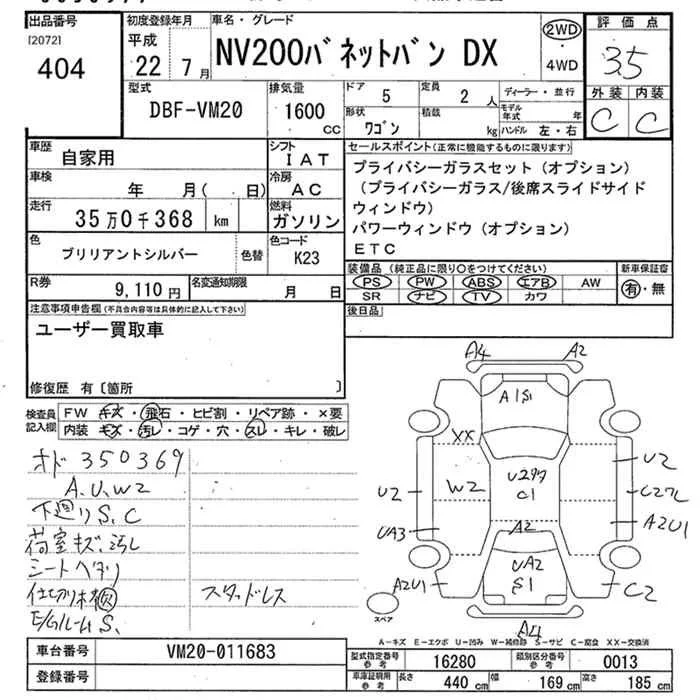 出品番号
[2072]
404
初度登録年月
平成
22年7月
車名・グレード
NV200バネットバン DX
2WD
・
4WD
評価点
3.5
外装 内装
C C
型式
DBF-VM20
排気量
1600
CC
ドア 5
定員 2 人
形状 ワゴン
積載 kg
ディーラー・並行
モデル年式 年
ハンドル 左・右
車歴 自家用
シフト IAT
車検 年 月( 日)
冷房 AC
走行 35万0千368 km
燃料 ガソリン
色 ブリリアントシルバー
色替
色コード K23
R券 9,110円
名変通知期限 月 日
セールスポイント(正常に機能するものに限ります)
プライバシーガラスセット(オプション)
(プライバシーガラス/後席スライドサイド
ウィンドウ)
パワーウィンドウ(オプション)
ETC
装備品(純正品に限り○をつけてください)
新車保証書
PS PW ABS エアB AW
SR ナビ TV カワ
有・無
後日品
注意事項申告欄(不具合内容等は具体的に記入して下さい)
ユーザー買取車
修復歴 有〔箇所 〕
検査員
記入欄
FW キズ・飛石・ヒビ割・リペア跡・×要
内装 キズ・汚レ・コゲ・穴・スレ・キレ・破レ
オド 350369
A.U.W2
下廻りS.C
荷室キズ.汚レ
シートヘタリ
E/GルームS.
スタッドレス
A4
A2
A1S1
XX
U2
W2
C1
U2
UA3
A2U1
A2
UA2
S1
A2U1
C2
A4
スペア
A-キズ E-エクボ U-凹み W-補修跡 S-サビ C-腐食 XX-交換済
車台番号 VM20-011683
登録番号
型式指定番号
参考
16280
類別区分番号
参考
0013
車庫証明用
参考
長さ 440 cm
幅 169 cm
高さ 185 cm